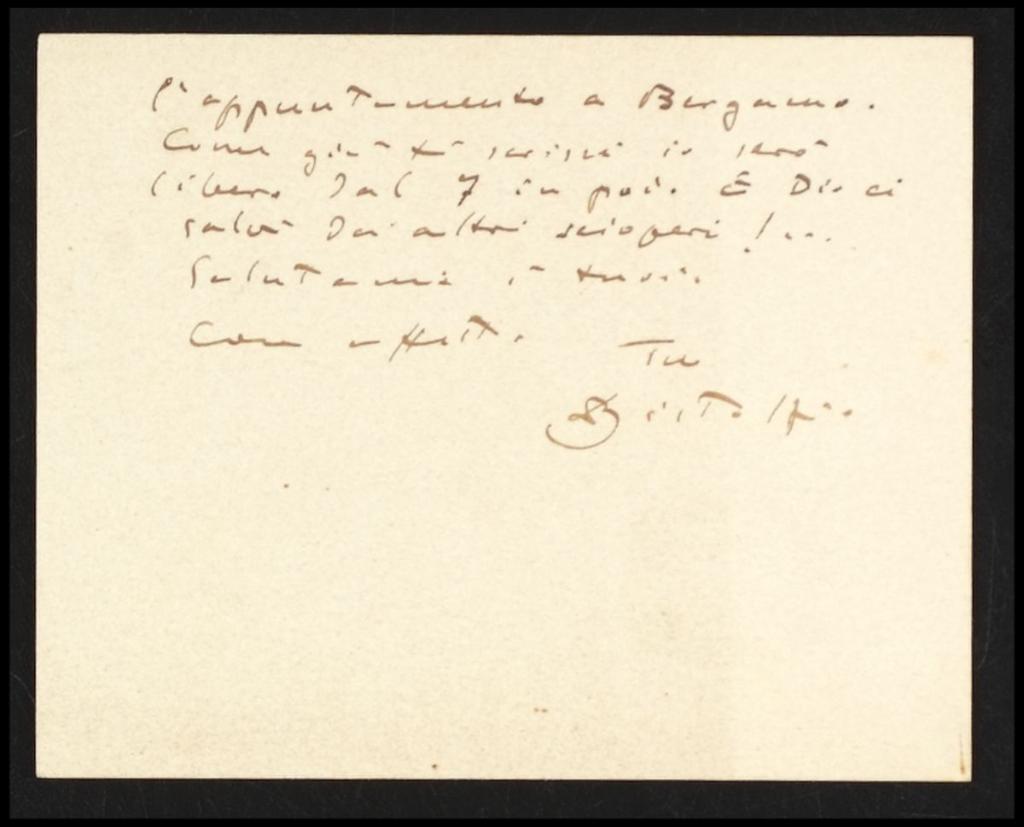 l'appuntamento a Bergamo.
Come già ti scrissi io sarò
libero dal 7 in poi. E Dio ci
salvi da altri scioperi!...
Salutami i tuoi.
Con affetto
Tuo